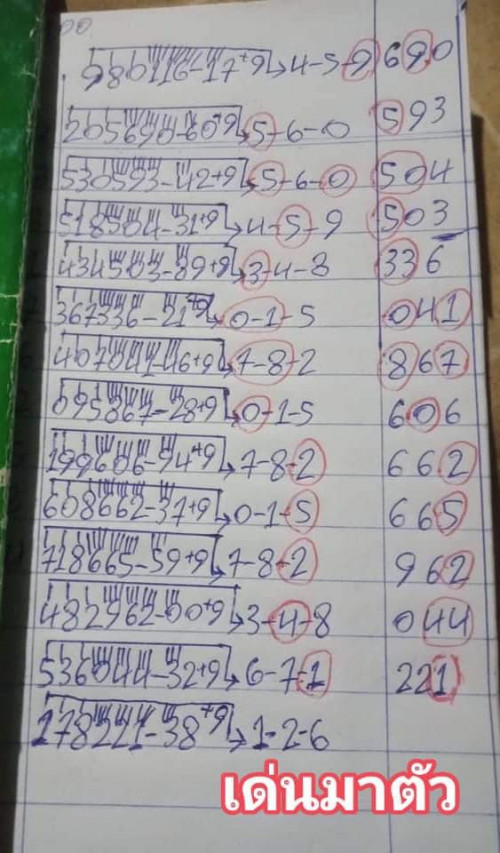 00
+9→4-5-9 690
+9→5-6-0 593
530593-42+9→5-6-0 504
318504-31+9→4-5-9 503
434503-89+9→3-4-8 336
367336-21+9→0-1-5 041
407041-46+9→7-8-2 867
695867-28+9→0-1-5 606
199606-94+9→7-8-2 662
608662-37+9→0-1-5 665
718665-59+9→7-8-2 962
482962-90+9→3-4-8 044
536044-32+9→6-7-1 221
178221-38+9→1-2-6
เด่นมาตัว